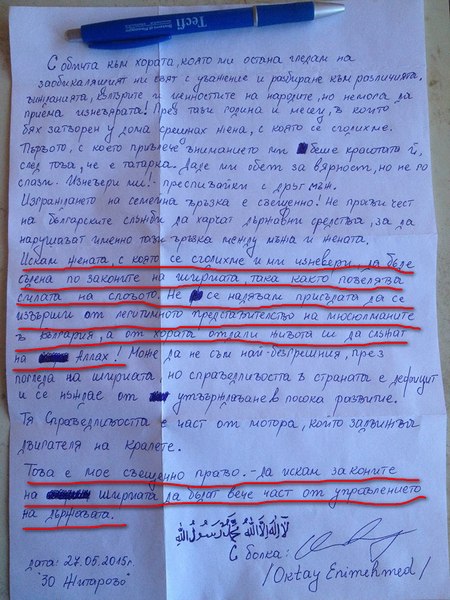 Tecfi
С обичта към хората, която ми остана гледам на
заобикалящият ни свят с уважение и разбиране към различията,
вижданията, културите и ценностите на народите, но немога да
приема изневярата! През тази година и месец, в които
бях затворен у дома срещнах жена, с която се сгодихме.
Първото, с което привлече вниманието ми беше красотата ѝ,
след това, че е татарка. Даде ми обет за вярност, но не го
спази. Изневери ми! - преспивайки с друг мъж.
Изграждането на семейна връзка е свещенно! Не прави чест
на българските служби да харчат държавни средства, за да
нарушават именно тази връзка между мъжа и жената.
Искам жената, с която се сгодихме и ми изневери, да бъде
съдена по законите на ширията, така както повелява
силата на словото. Не се надявам присъдата да се
извърши от легитимното представителство на мюсюлманите
в България, а от хората отдали живота си да служат
на Аллах! Може да не съм най-безгрешния, през
погледа на ширията, но справедливостта в страната е дефицит
и се нуждае от утвърждаване в посока развитие.
Тя Справедливостта е част от мотора, който задвижва
двигателя на кралете.
Това е мое свещенно право. - да искам законите
на шириата да бъдат вече част от управлението
на държавата.
لا اله الا الله محمد رسول الله
С болка:
дата: 27.05.2015г.
"ЗО Житарово"
/Oktay Enimehmed/